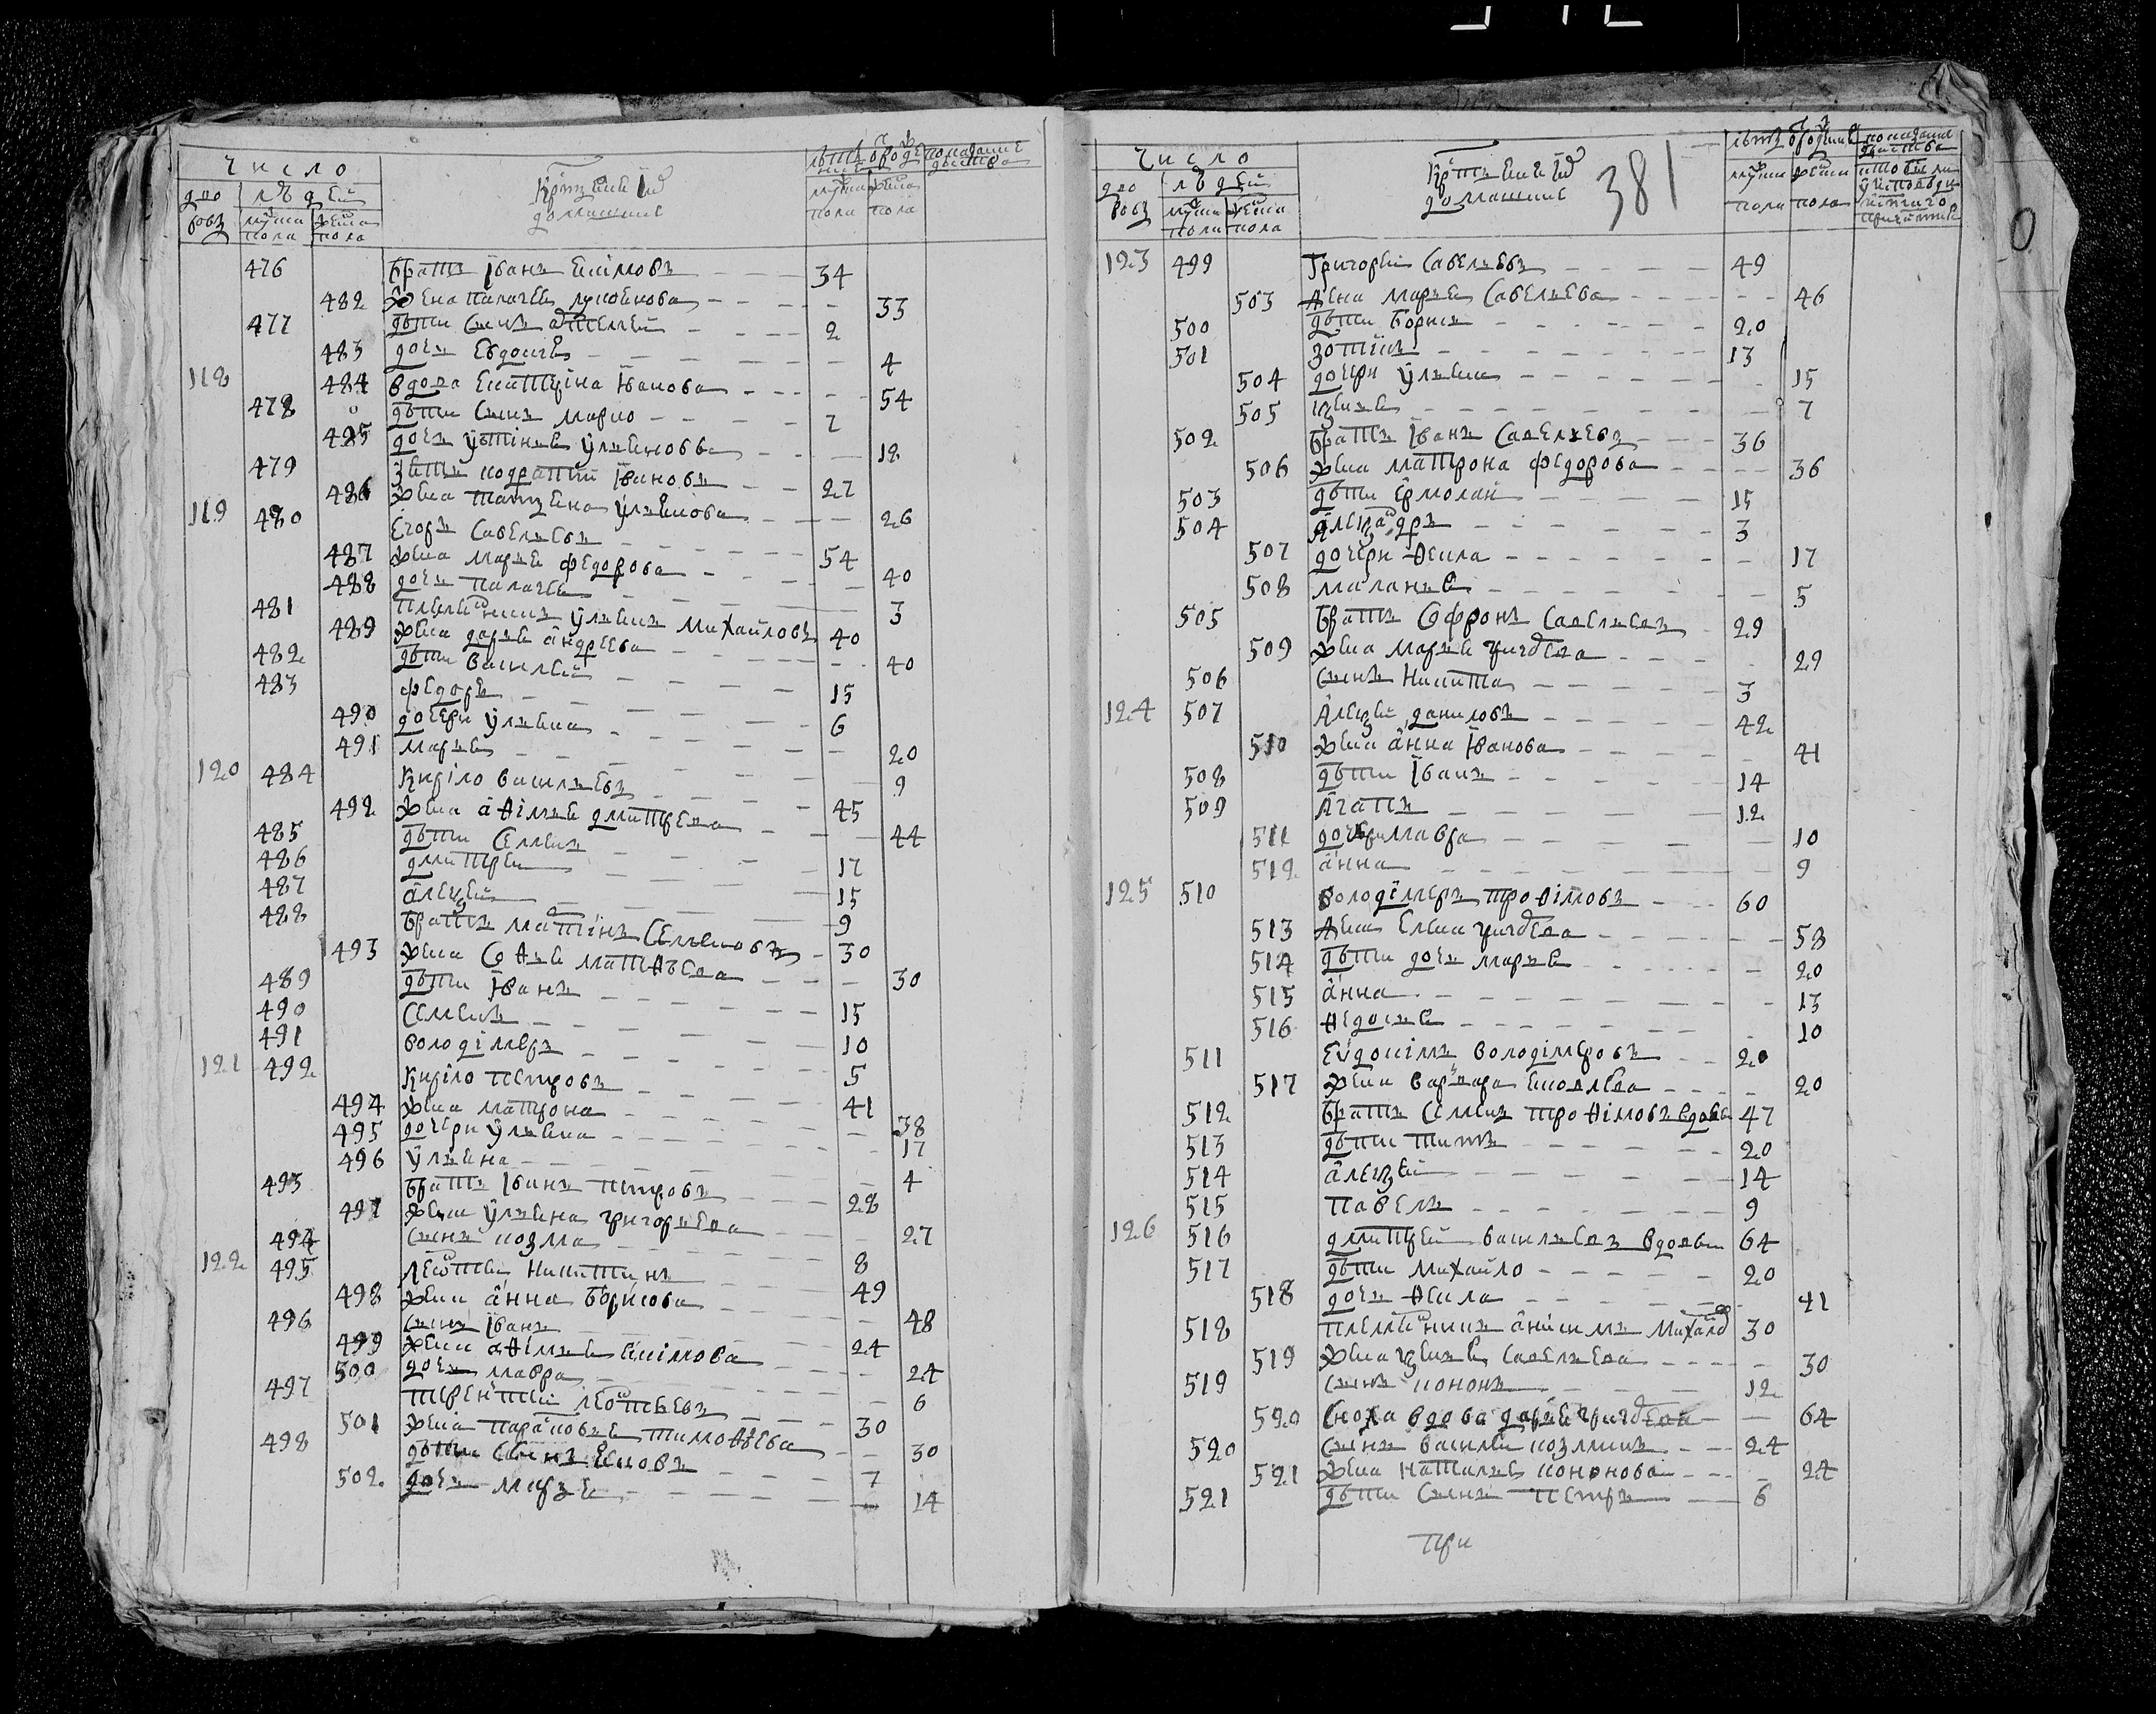 число
дво
ровъ
людей
муска
пола
женска
пола
домашние
муска
пола
женска
пола
476 братъ Иванъ Екимовъ 34
482 жена Палагея 33
477 дѣти сынъ 2
483 дочь Евдокия 4
118 484 вдова Екатерина Иванова 54
478 дѣти сынъ Марко 7
485 дочь 12
479 зять Кодратий Ивановъ 27
486 жена Татьяна 26
119 480 Егоръ Савельевъ 54
487 жена Марья Федорова 40
488 дочь Палагея 3
481 племянникъ Ульянъ Михайловъ 40
489 жена Дарья Андреева 40
482 дѣти Василей 15
483 Федоръ 6
490 дочери Ульяна 20
491 Марья 9
120 484 Кирило Васильевъ 45
492 жена Афимья Дмитрева 44
485 дѣти Семенъ 17
486 Дмитрей 15
487 Алексей 9
488 братъ Мартинъ Семеновъ 30
493 жена Софья Матфѣева 30
489 дѣти Иванъ 15
490 Семенъ 10
491 Володимеръ 5
121 492 Кирило Петровъ 41
494 жена Матрона 38
495 дочери Ульяна 17
496 Ульяна 4
493 братъ Иванъ Петровъ 28
497 жена Ульяна Григорьева 27
494 сынъ Козма 8
122 495 Леонтей Никитинъ 49
498 жена Анна Борисова 48
496 сынъ Иванъ 24
499 жена Афимья Екимова 24
500 дочь Мавра 6
497 Терентий Леонтьевъ 30
501 жена Парасковья Тимофѣева 30
498 дѣти сынъ Яковъ 7
502 дочь Марья 14
число
дво
ровъ
людей
муска
пола
женска
пола
домашние
381
муска
пола
женска
пола
123 499 Григорей Савельевъ 49
503 жена Марья Савельева 46
500 дѣти Борисъ 20
501 Зотикъ 13
504 дочери Ульяна 15
505 7
502 братъ Иванъ Савельевъ 36
506 жена Матрона Федорова 36
503 дѣти Ермолай 15
504 Александръ 3
507 дочери Фекла 17
508 Маланья 5
505 братъ Софронъ Савельевъ 29
509 жена Марья 29
506 сынъ Никита 3
124 507 Алексей Даниловъ 42
510 жена Анна Иванова 41
508 дѣти Иванъ 14
509 Агапъ 12
511 дочери Мавра 10
512 Анна 9
125 510 Володимеръ Трофимовъ 60
513 жена Елена 58
514 дѣти дочь Марья 20
515 Анна 13
516 Федосья 10
511 Евдокимъ Володимеровъ 20
517 жена Варвара Яковлева 20
512 братъ Семенъ Трофимовъ вдовъ 47
513 дѣти Титъ 20
514 Алексей 14
515 Павелъ 9
126 516 Дмитрей Васильевъ вдовъ 64
517 дѣти Михайло 20
518 дочь Фекла 41
518 племянникъ Анисимъ Михайлов 30
519 жена Савельева 30
519 сынъ Кононъ 12
520 сноха вдова Дарья 64
520 сынъ Василей Козминъ 24
521 жена Наталья Кононова 24
521 дѣти сынъ Петръ 6
При